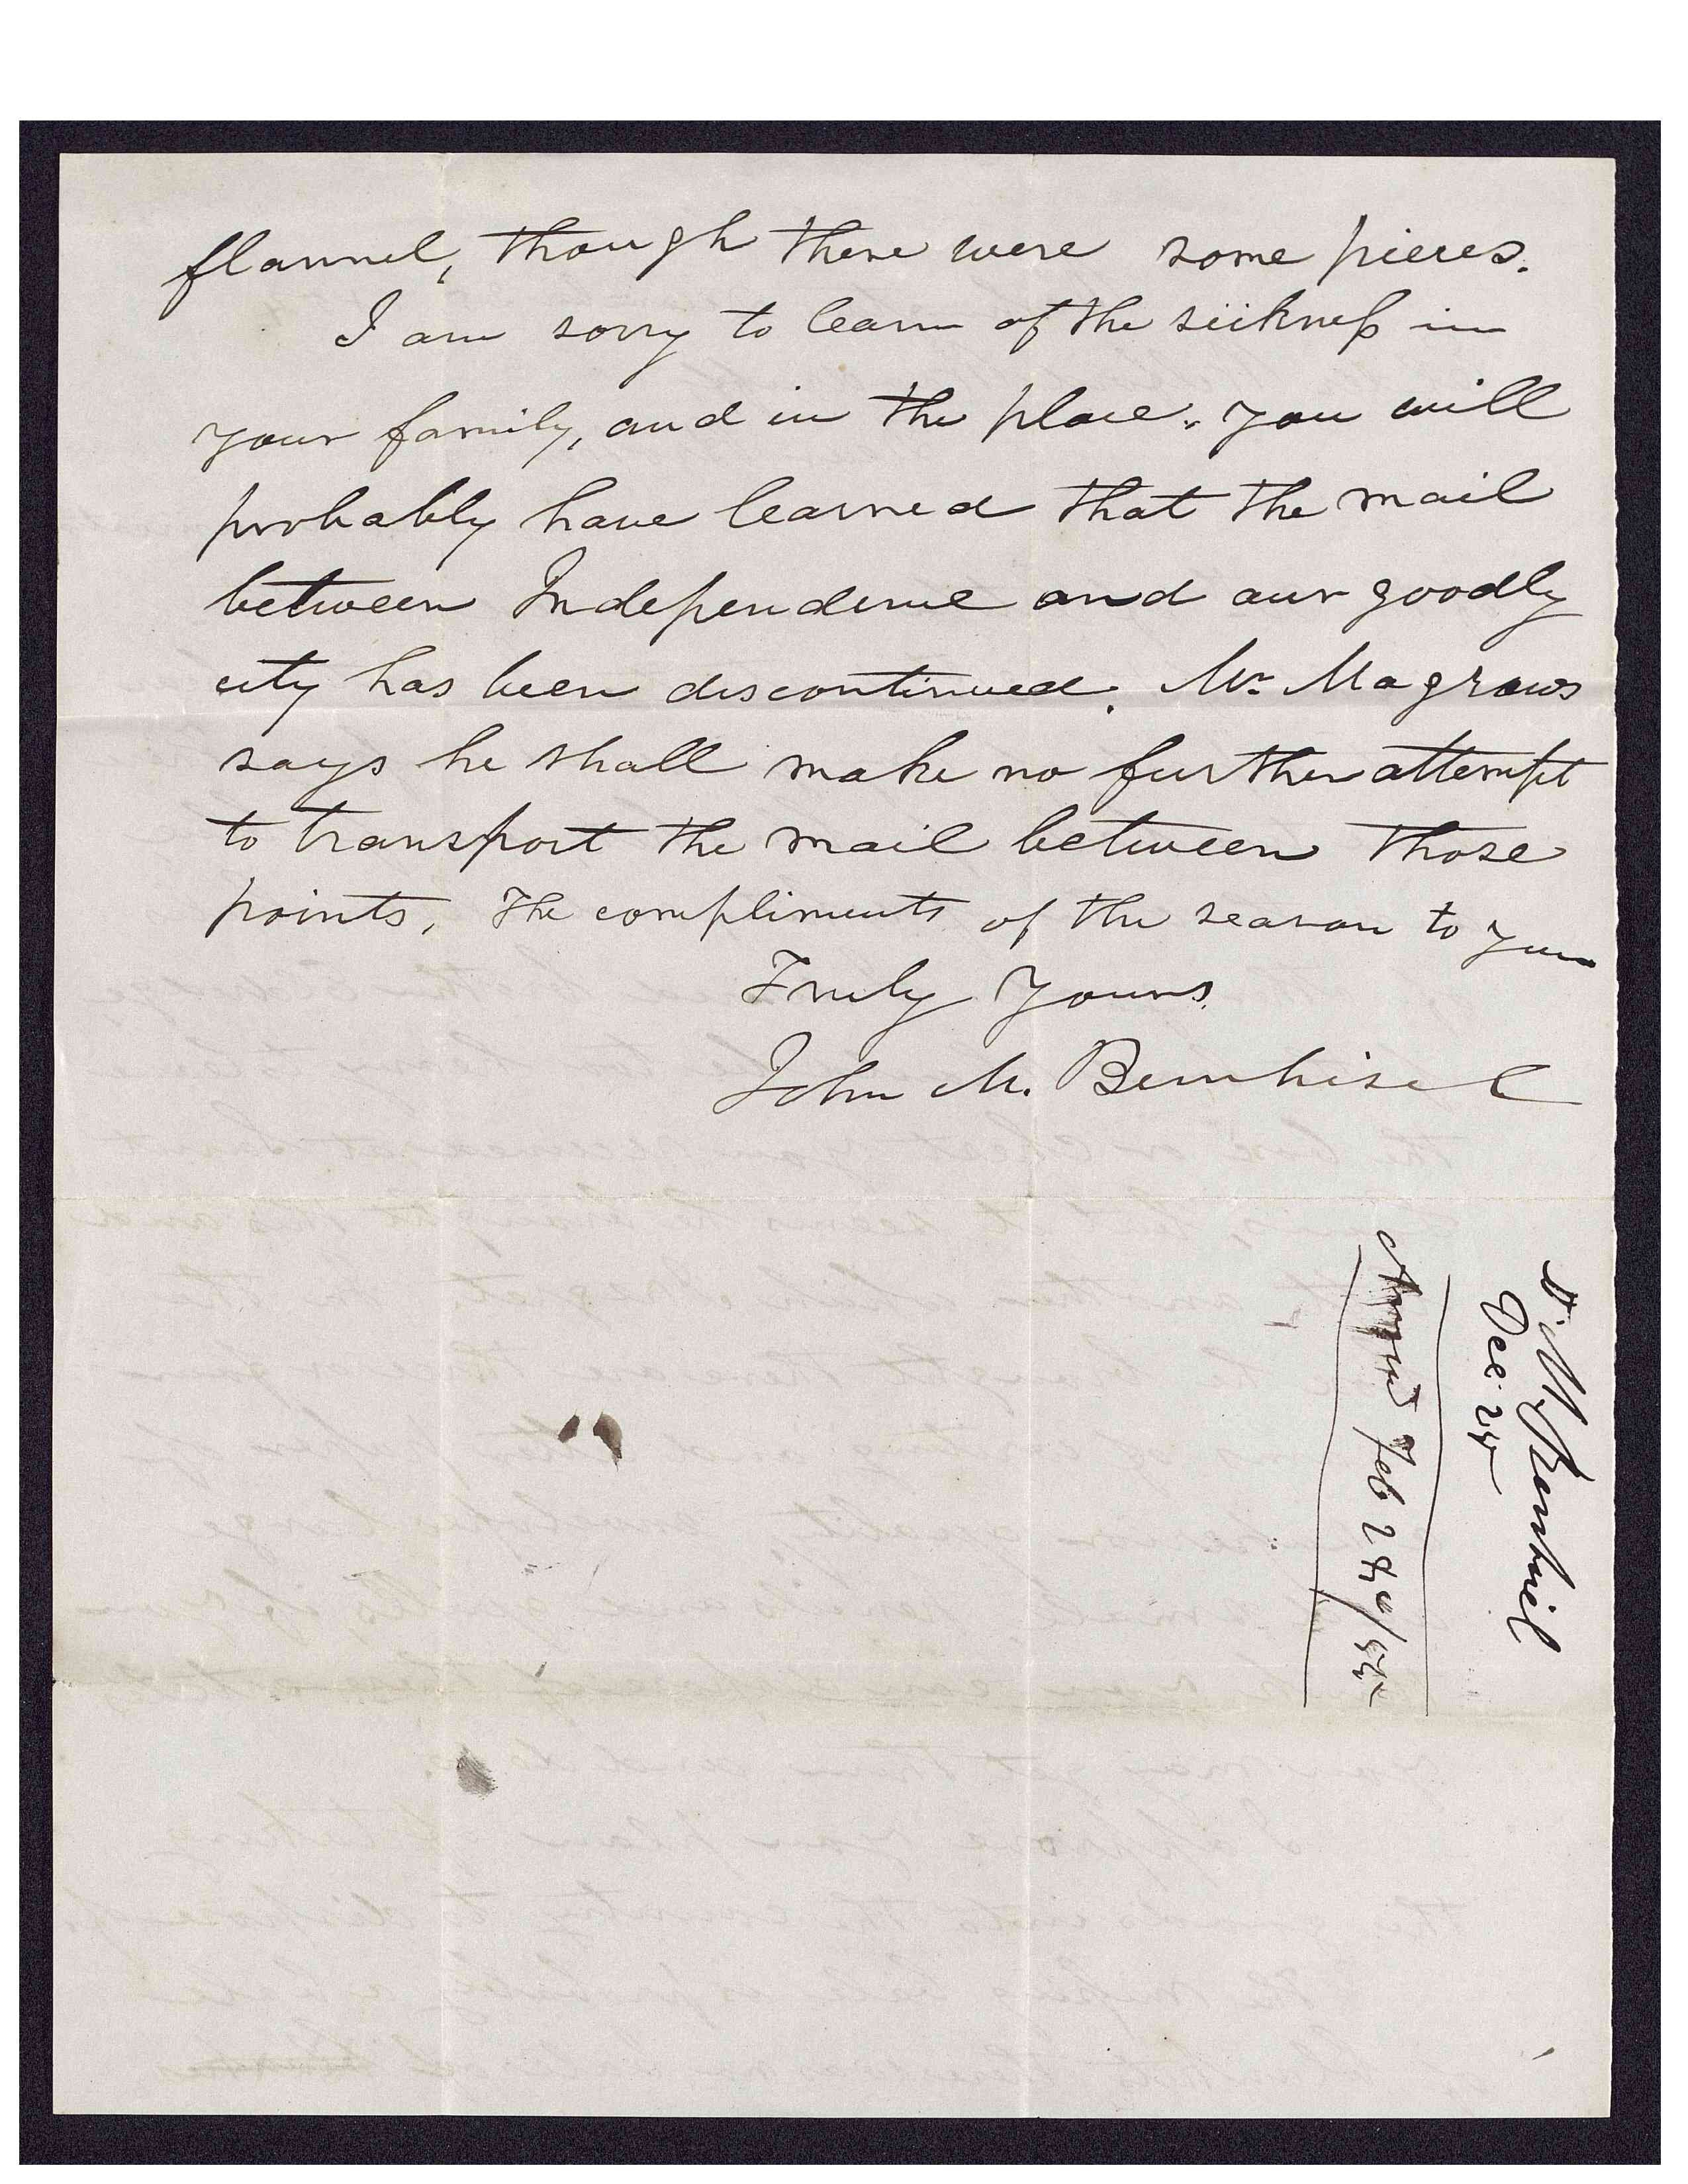 flannel, though there were some pieces.
I am sorry to learn of the sickneß in
your family, and in the place. You will
probably have learned that the mail
between Independence and our goodly
city has been discontinued. Mr. Magraws
says he shall make no further attempt
to transport the mail between those
points. The compliments of the season to you
Truly Yours.
John M. Bernhisel
Dr. M. Bernhisel
Dec. 24
Feb